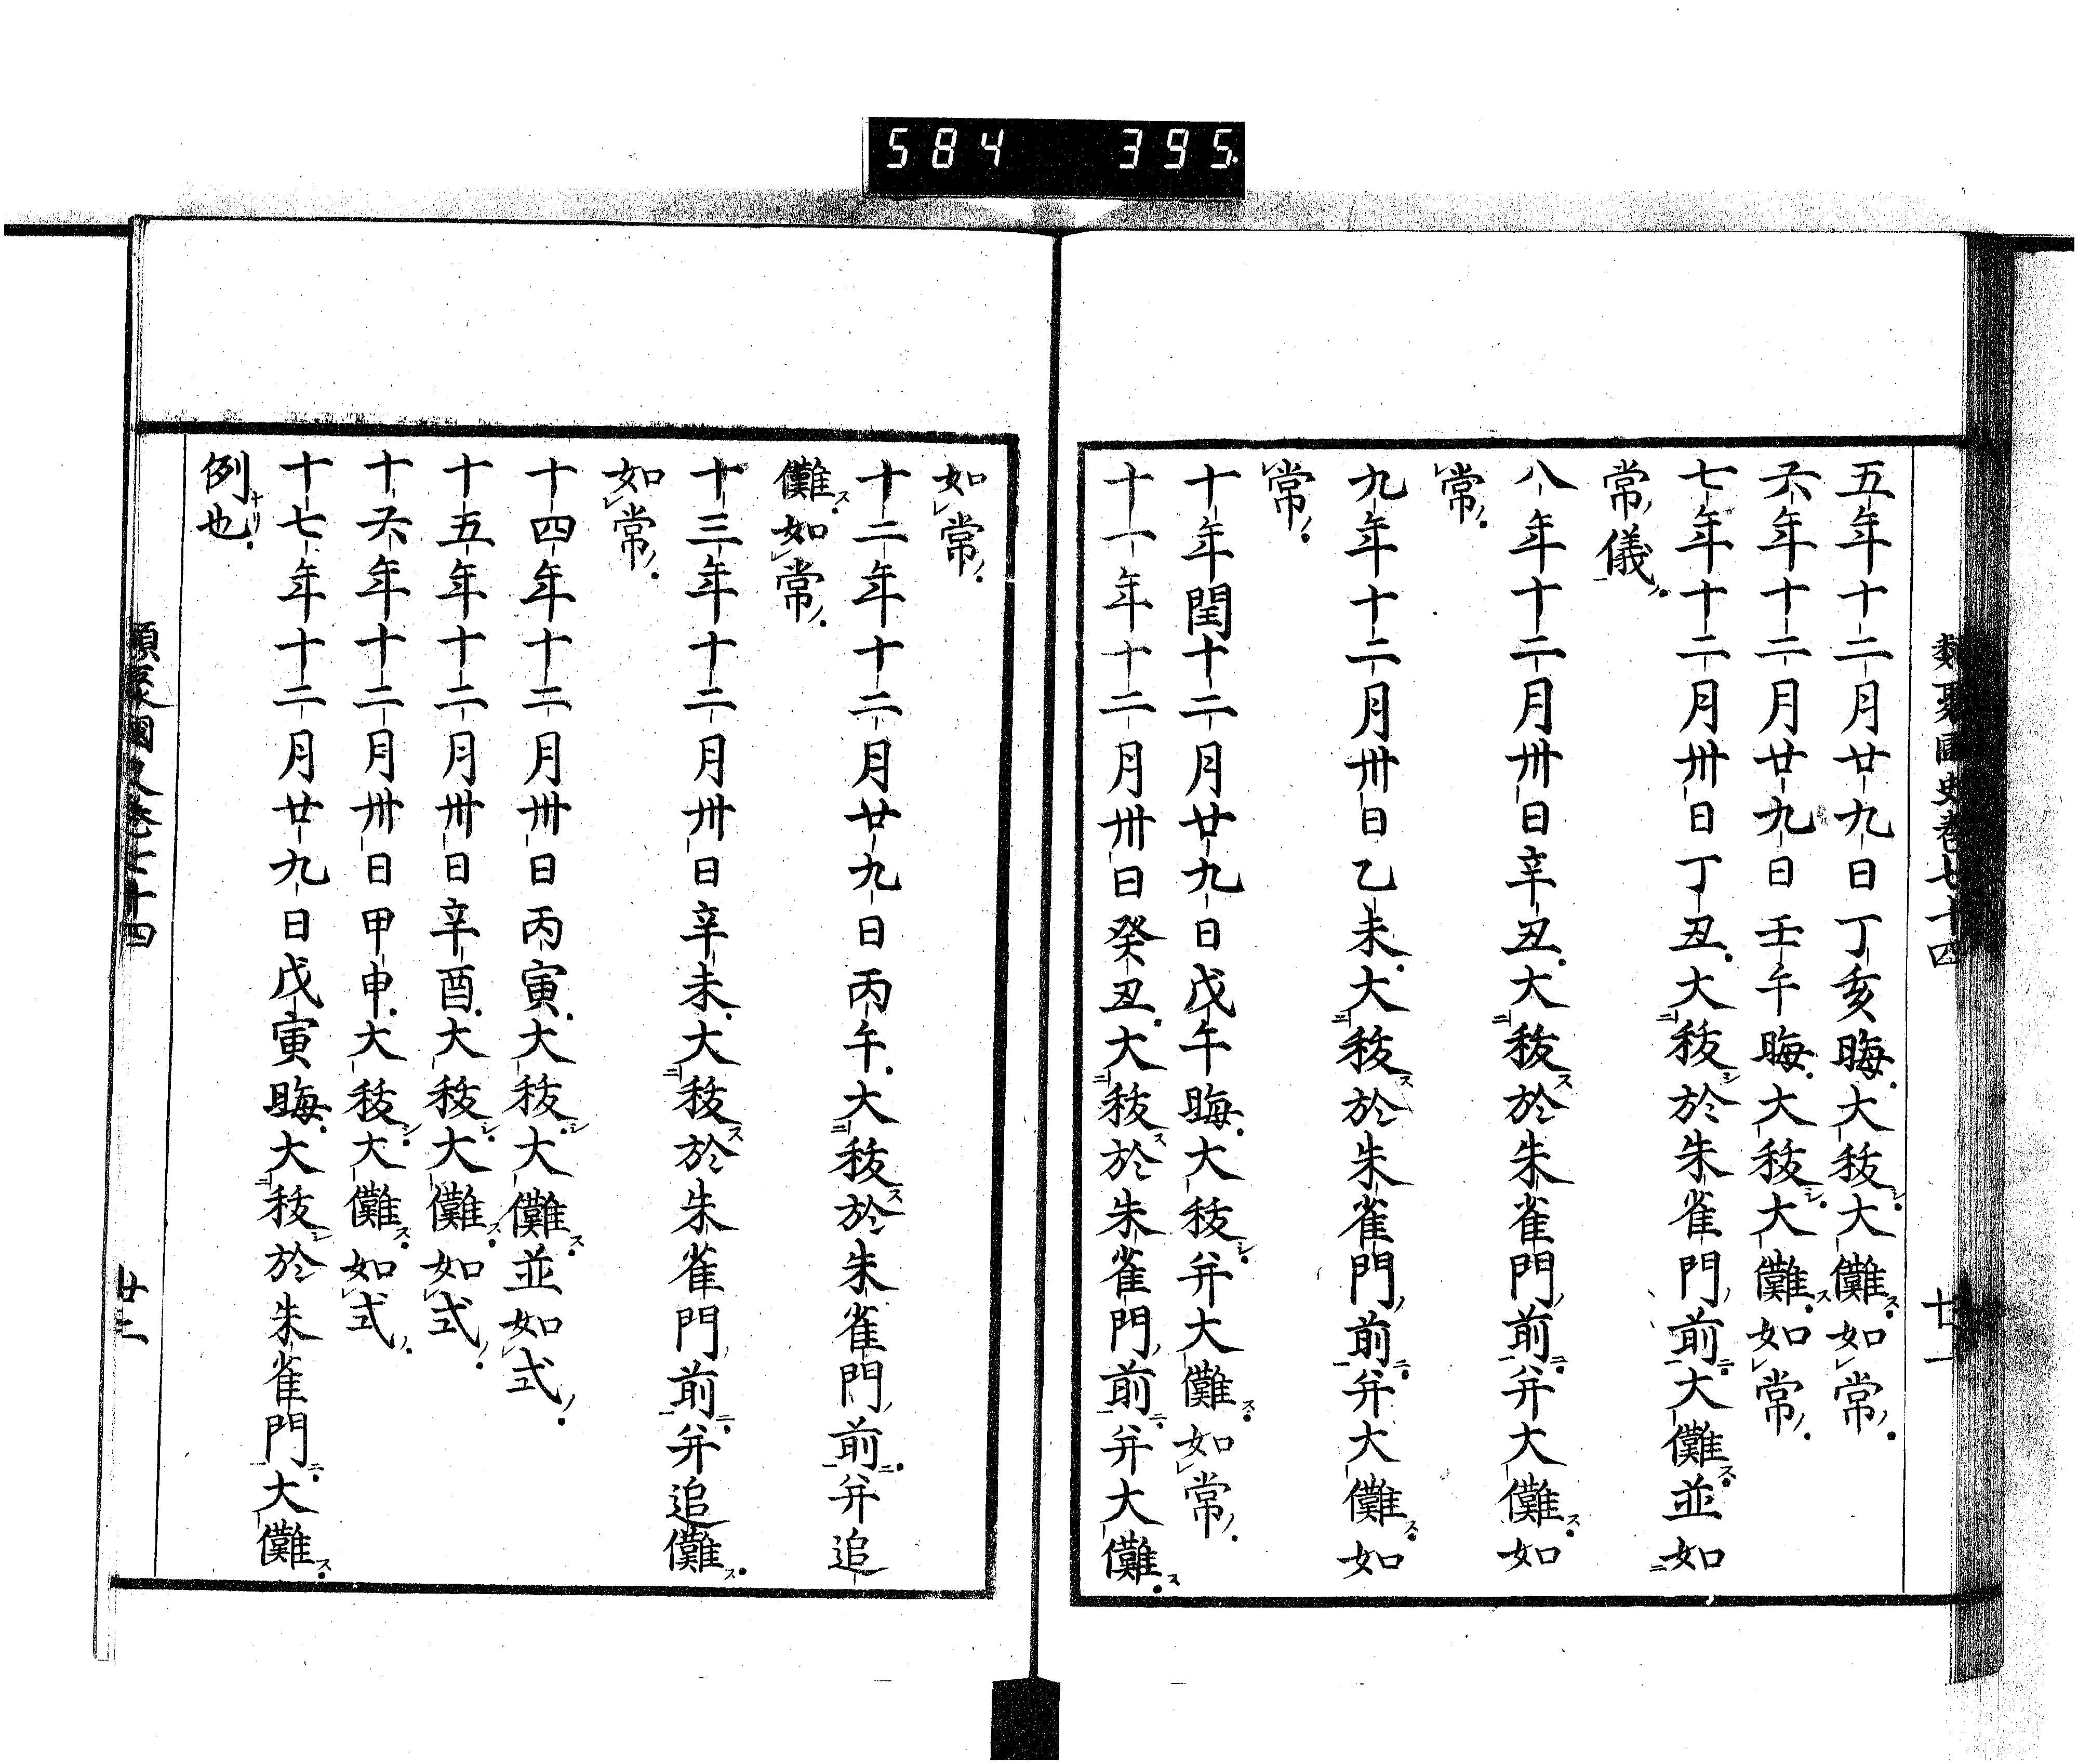 584 395
類聚國史卷七十四 廿一
五年十二月廿九日丁亥晦大秡大儺如常
六年十二月廿九日壬午晦大秡大儺如常
七年十二月卅日丁丑大秡於朱雀門前大儺並如
常儀
八年十二月卅日辛丑大秡於朱雀門前并大儺如
常
九年十二月卅日乙未大秡於朱雀門前并大儺如
常
十年閏十二月廿九日戊午晦大秡并大儺如常
十一年十二月卅日癸丑大秡於朱雀門前并大儺
如常
十二年十二月廿九日丙午大秡於朱雀門前并追
儺如常
十三年十二月卅日辛未大秡於朱雀門前并追儺
如常
十四年十二月卅日丙寅大秡大儺並如式
十五年十二月卅日辛酉大秡大儺如式
十六年十二月卅日甲申大秡大儺如式
十七年十二月廿九日戊寅晦大秡於朱雀門大儺
例也
類聚國史卷七十四 廿二